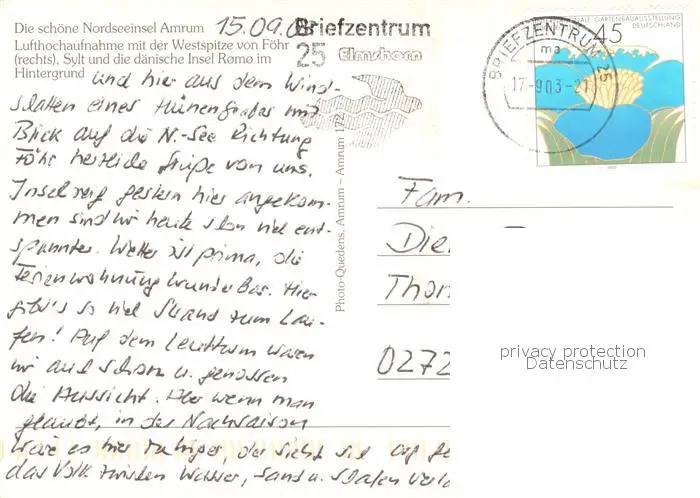 Die schöne Nordseeinsel Amrum
15.09.03
Lufthochaufnahme mit der Westspitze von Föhr
(rechts), Sylt und die dänische Insel Rømø im
Hintergrund
und hier aus dem Wind-
schatten eines Hünengrabes mit
Blick auf die N.-See Richtung
Föhr herzliche Grüße von uns.
Insel gestern hier angekom-
men sind wir heute schon viel ent-
spannter. Wetter ist prima, die
Ferienwohnung wunderbar. Hier
gibt's so viel Strand zum Lau-
fen! Auf dem Leuchtturm waren
wir auch schon u. genossen
die Aussicht. Aber wenn man
glaubt, in der Nachsaison
wäre es hier ruhiger, der sieht sich
das Volk zwischen Wasser, Sand u.
Photo-Quedens, Amrum – Amrum 172
Briefzentrum
25 Elmshorn
BRIEFZENTRUM 25
ma
17-9.03-21
GARTENBAUAUSSTELLUNG
DEUTSCHLAND
45
Fam.
Die
Thor
0272
privacy protection
Datenschutz